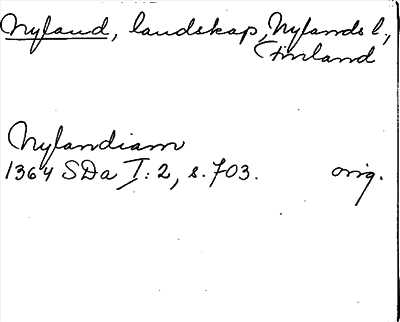 Nyland, landskap, Nylands l.,
Finland
Nylandiam
1364 SDa I:2, s. 703. orig.